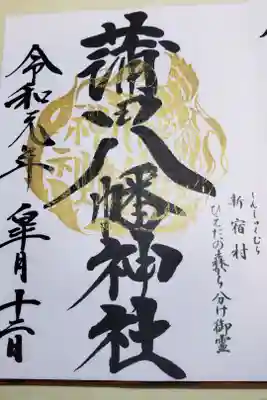 新宿村
しんしゅくむら
ひえだの森から分け御霊
蒲田八幡神社
令和元年 皐月十二日